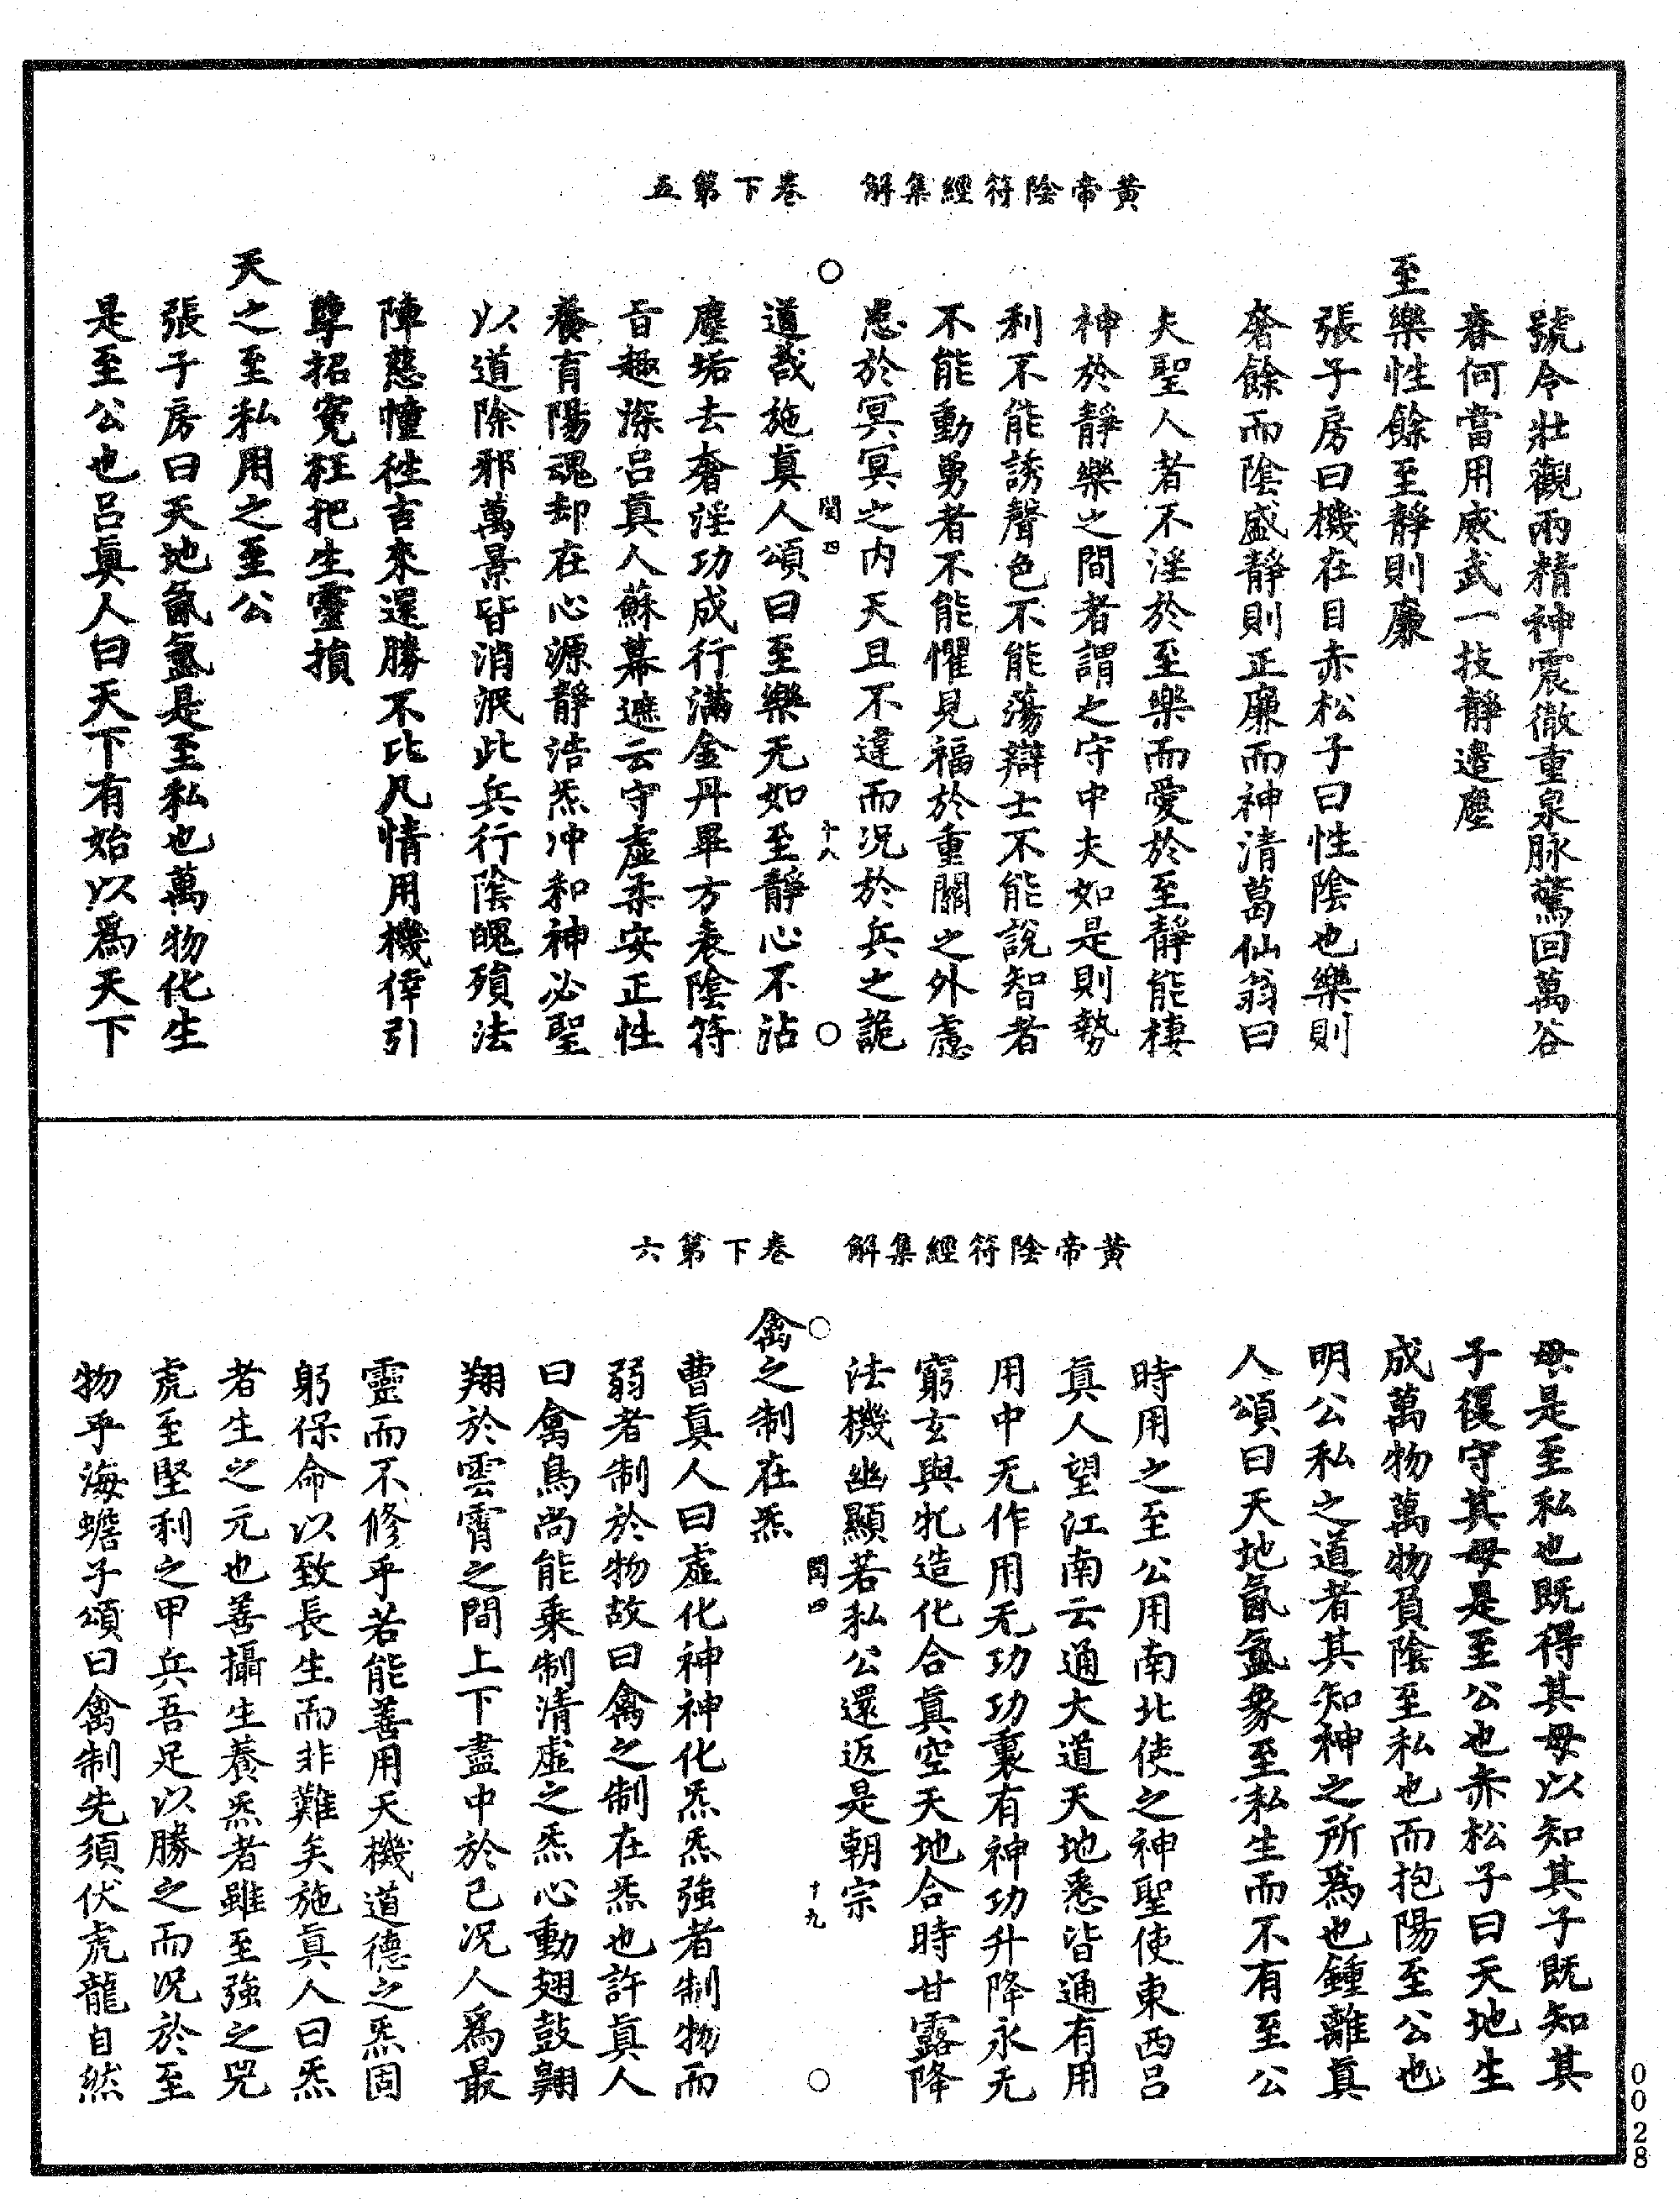 黃帝陰符經集解　卷下第五
號令壯觀兩精神震徹重泉脉驚回萬谷
春何當用威武一技靜遣塵
至樂性餘至靜則廉
張子房曰機在目赤松子曰性陰也樂則
奢餘而陰盛靜則正廉而神清葛仙翁曰
夫聖人者不淫於至樂而愛於至靜能棲
神於靜樂之間者謂之守中夫如是則勢
利不能誘聲色不能蕩辯士不能說智者
不能動勇者不能懼見福於重關之外慮
患於冥冥之内天且不違而况於兵之詭
○ 閏四 十八 ○
道哉施真人頌曰至樂无如至靜心不沾
塵垢去奢淫功成行滿金丹畢方表陰符
旨趣深呂真人蘇幕遮云守虛柔安正性
養育陽魂却在心源靜浩炁冲和神必聖
以道除邪萬景皆消泯此兵行陰魄殞法
陣慈幢徃吉來還勝不比凡情用機倖引
孽招寃枉把生靈損
天之至私用之至公
張子房曰天地氤氳是至私也萬物化生
是至公也呂真人曰天下有始以爲天下
黃帝陰符經集解　卷下第六
母是至私也既得其母以知其子既知其
子復守其母是至公也赤松子曰天地生
成萬物萬物負陰至私也而抱陽至公也
明公私之道者其知神之所爲也鍾離真
人頌曰天地氤氳象至私生而不有至公
時用之至公用南北使之神聖使東西呂
真人望江南云通大道天地悉皆通有用
用中无作用用无功功裏有神功升降永无
窮玄與牝造化合真空天地合時甘露降
法機幽顯若私公還返是朝宗
○ 閏四 十九 ○
禽之制在炁
曹真人曰虛化神神化炁炁強者制物而
弱者制於物故曰禽之制在炁也許真人
曰禽鳥尚能乘制清虛之炁心動翅鼓翱
翔於雲霄之間上下盡中於已况人爲最
靈而不修乎若能善用天機道德之炁固
躬保命以致長生而非難矣施真人曰炁
者生之元也善攝生養炁者雖至強之兕
虎至堅利之甲兵吾足以勝之而况於至
物乎海蟾子頌曰禽制先須伏虎龍自然
0028